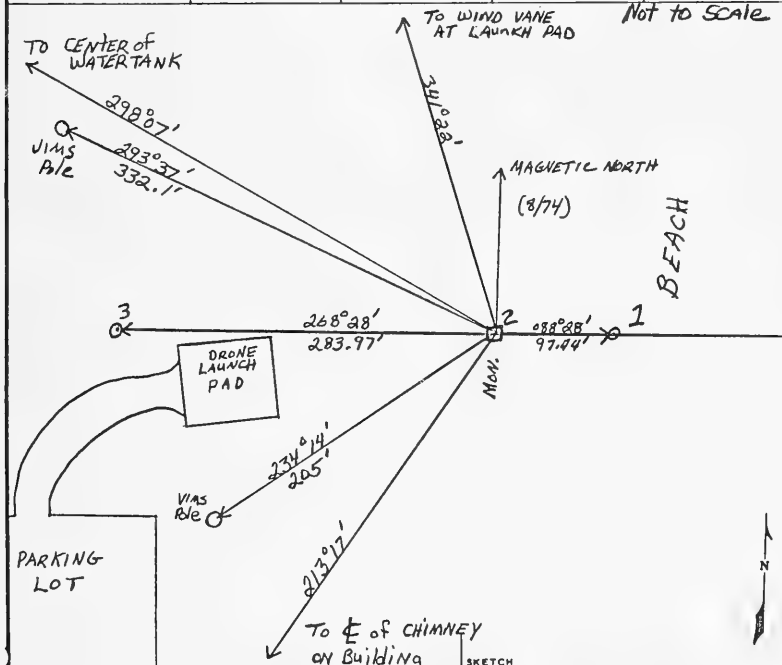 Not to Scale
TO WIND VANE
AT LAUNCH PAD
TO CENTER of
WATERTANK
298°07'
341°22'
VIMS
Pole
293°37'
332.1'
MAGNETIC NORTH
(8/74)
BEACH
3
268°28'
283.97'
2
088°28'
97.44'
1
MON.
DRONE
LAUNCH
PAD
234°14'
205'
VIMS
Pole
213°17'
PARKING
LOT
N
TO ℄ of CHIMNEY
ON Building
SKETCH